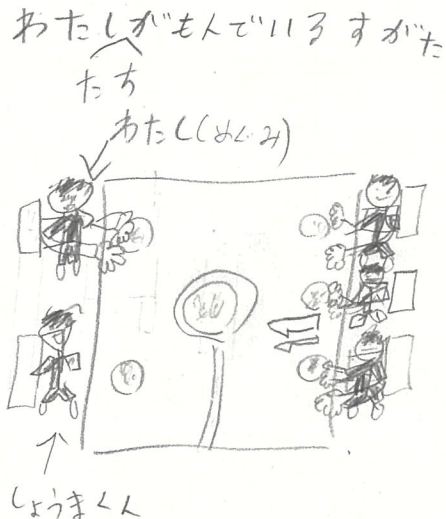 わたしがもんでいるすがた
たち
わたし(めぐみ)
しょうまくん